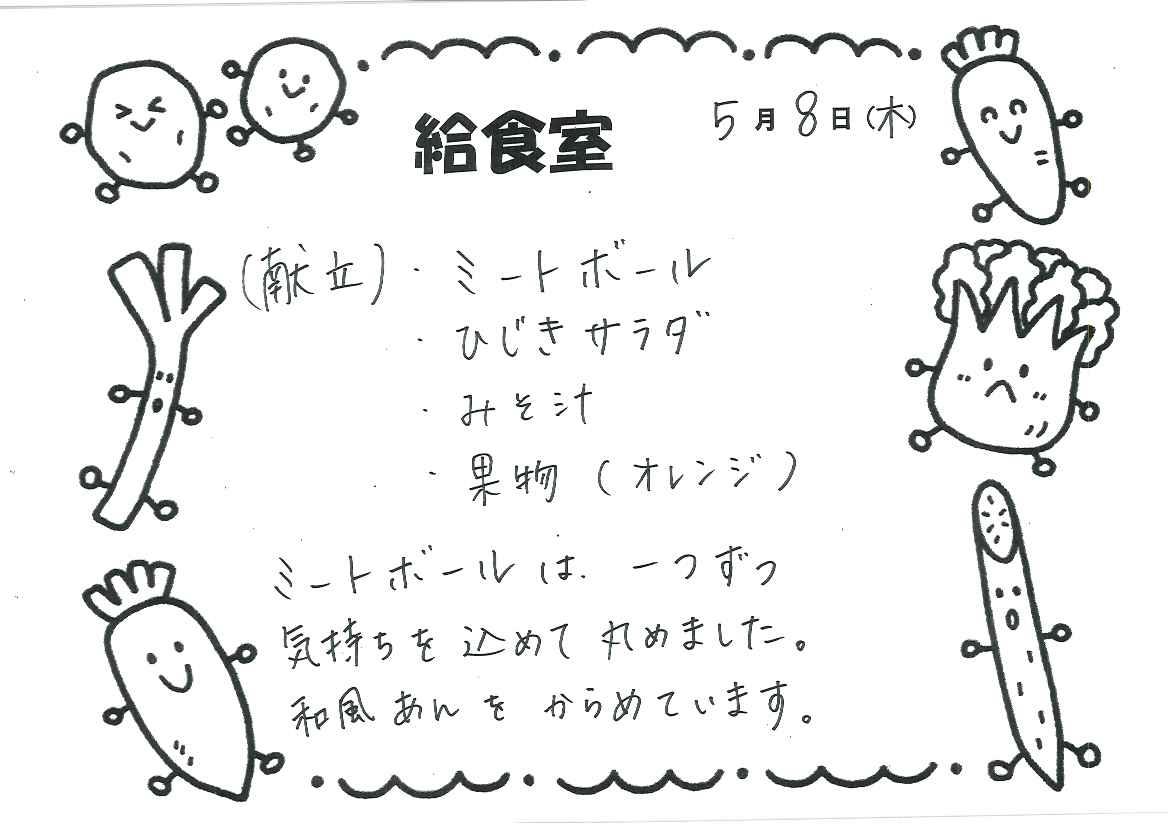 給食室
5月8日(木)
(献立)・ミートボール
・ひじきサラダ
・みそ汁
・果物(オレンジ)
ミートボールは、一つずつ
気持ちを込めて丸めました。
和風あんをからめています。